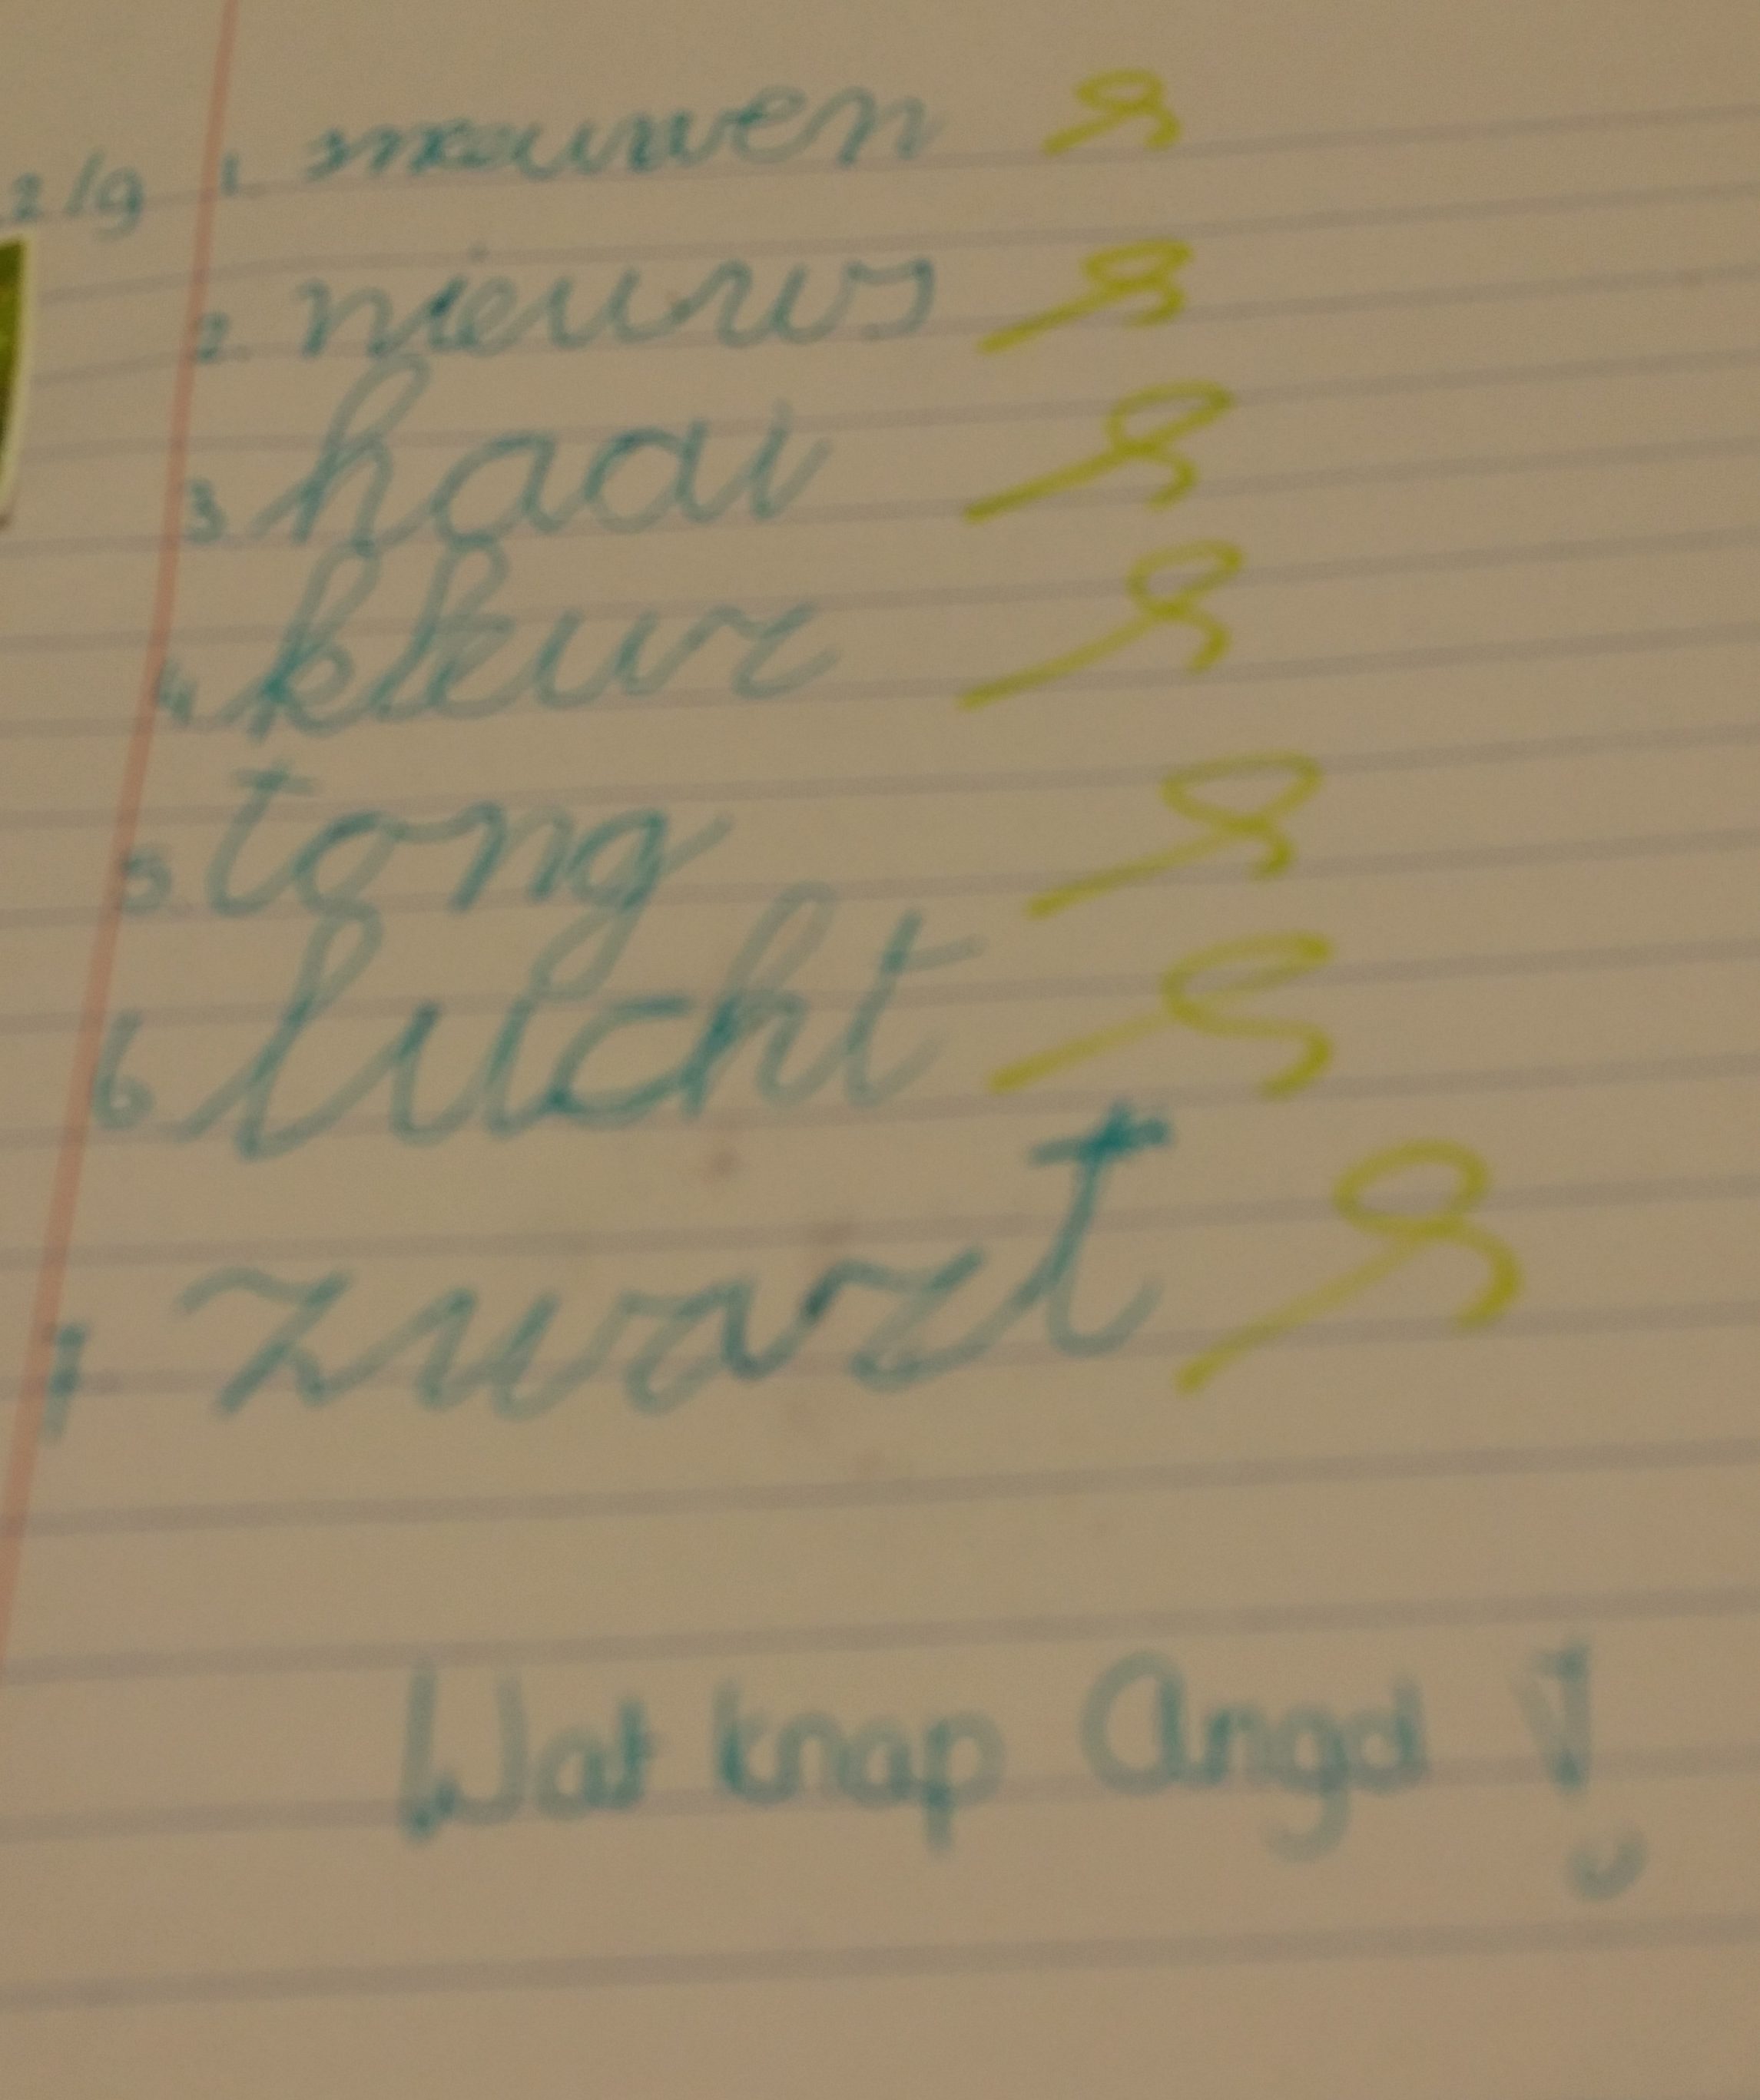 2/9 1. meeuwen
2. nieuws
3 haai
4. kleur
5. tong
6 lucht
7 zwart
Wat knap